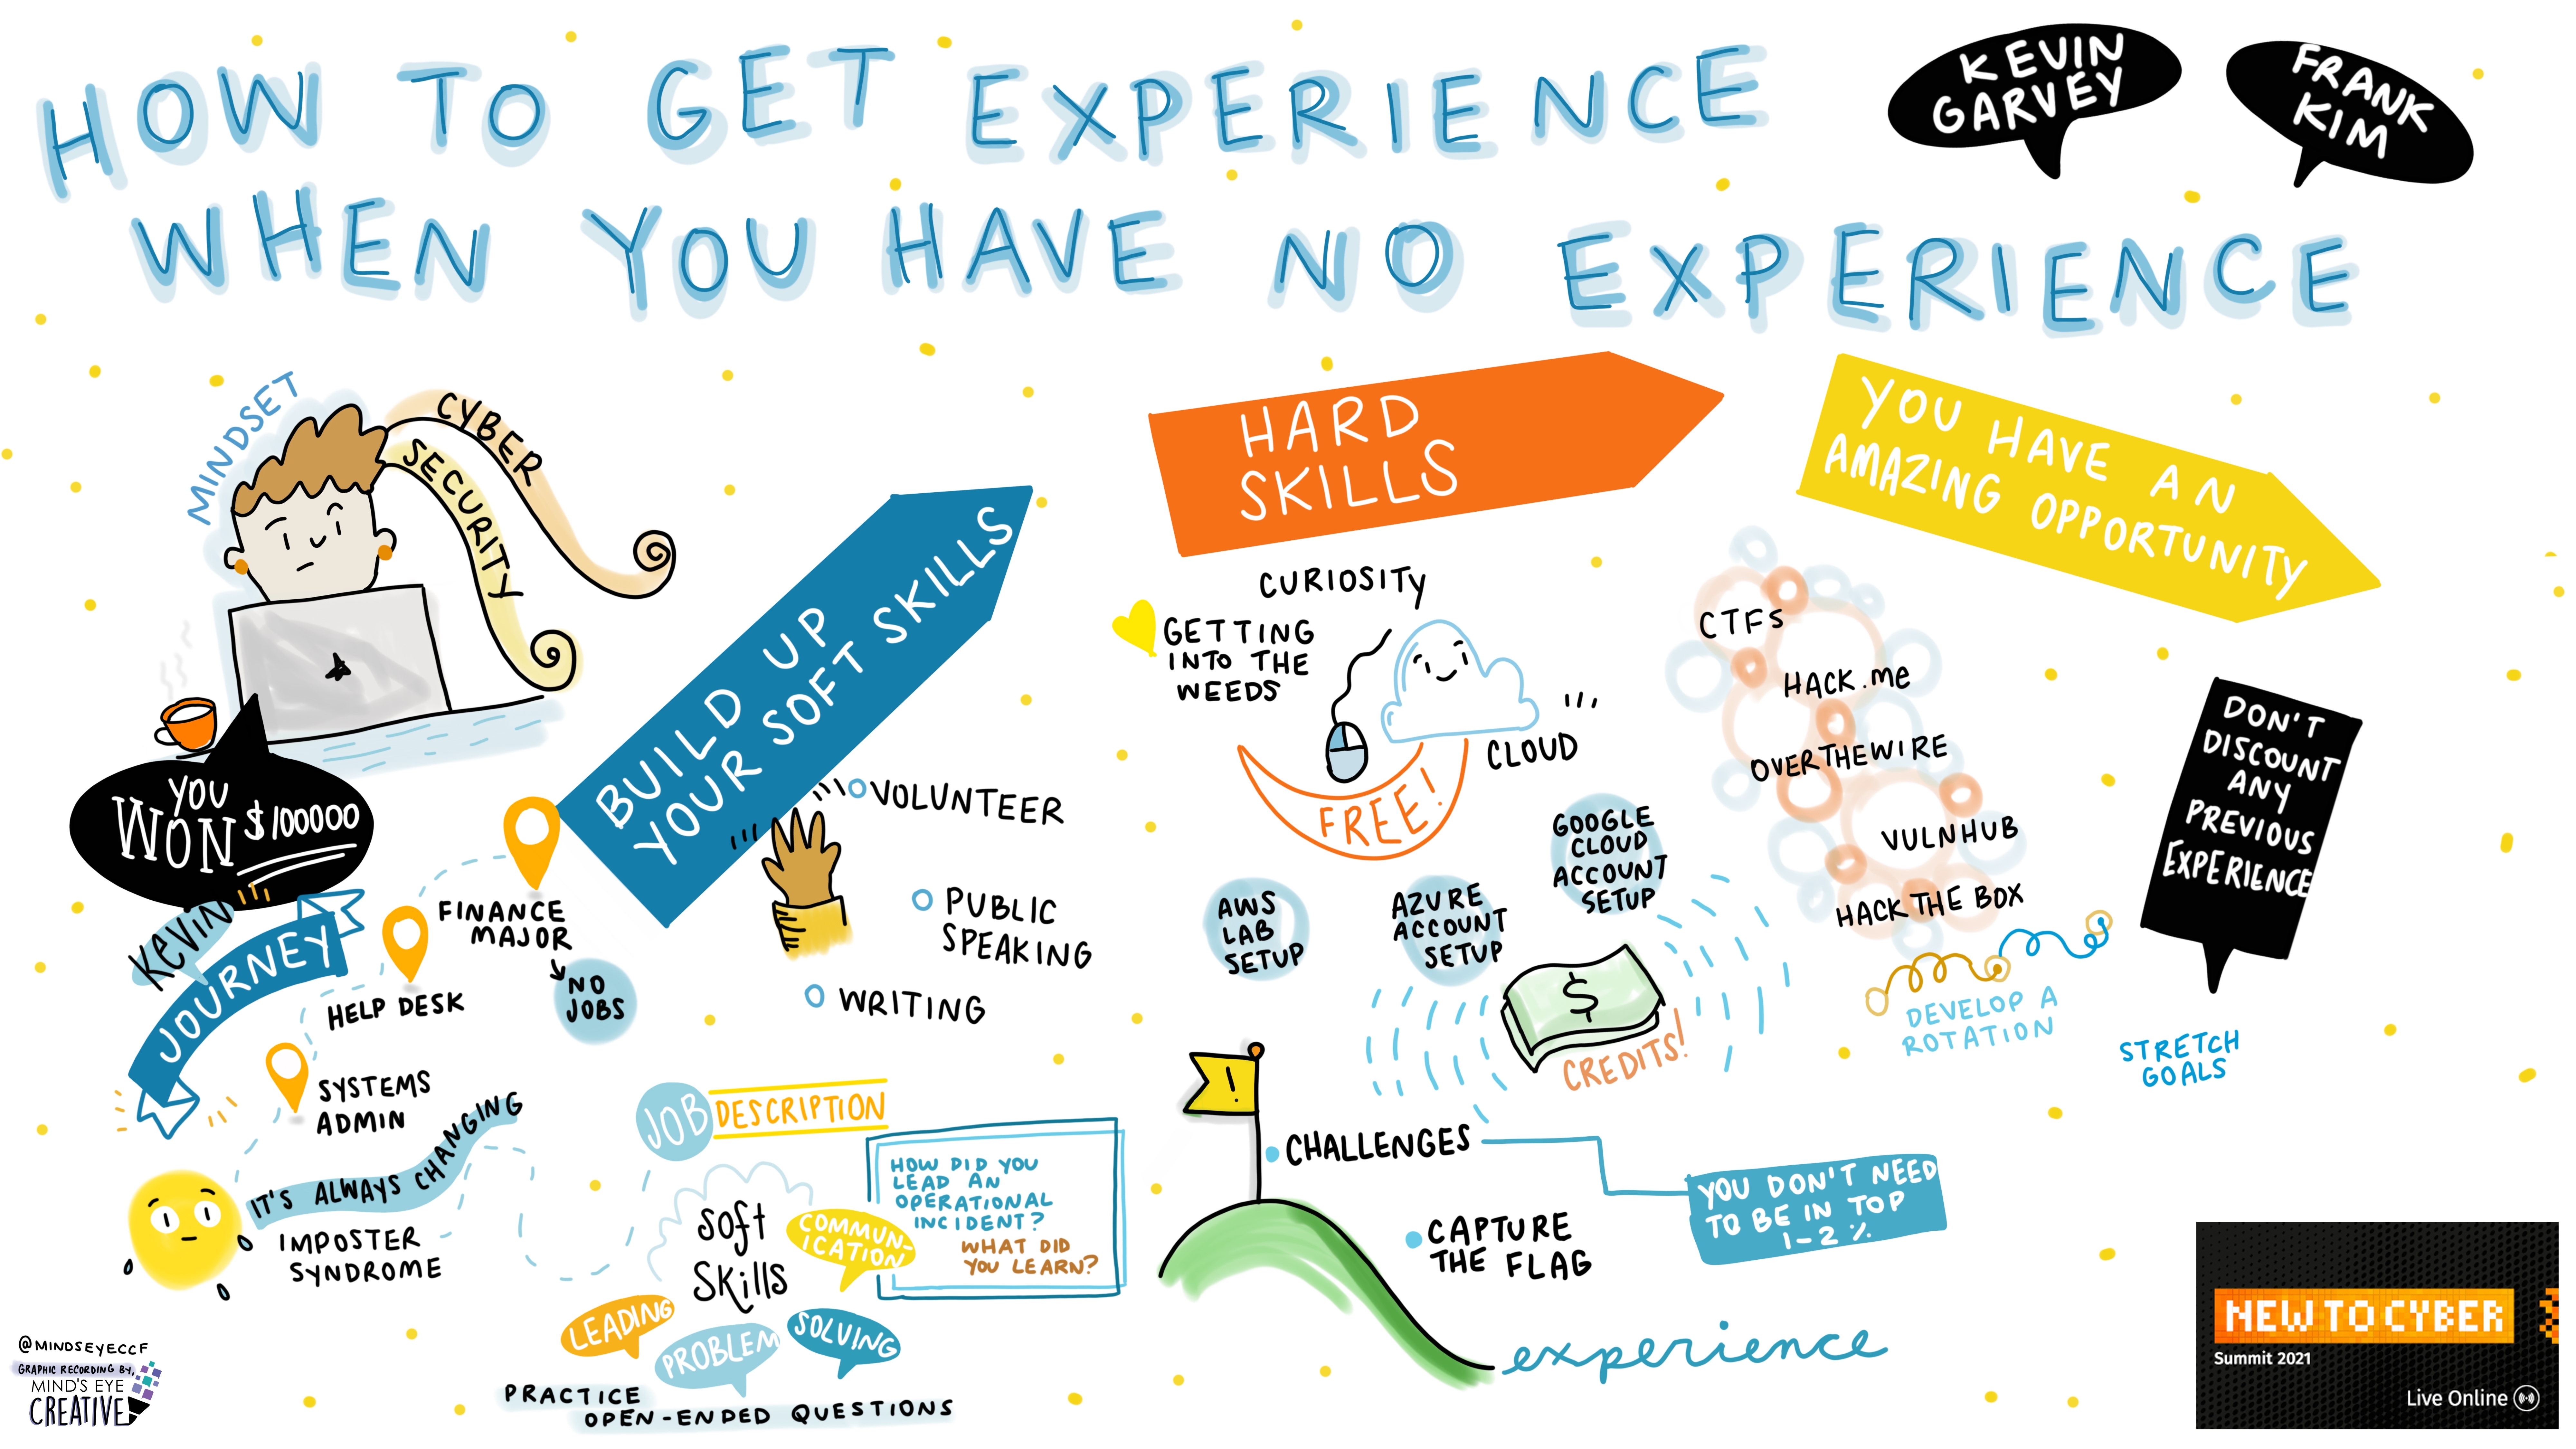 HOW TO GET EXPERIENCE
WHEN YOU HAVE NO EXPERIENCE
KEVIN
GARVEY
FRANK
KIM
MINDSET
CYBER
SECURITY
YOU
WON $100000
KEVIN
JOURNEY
FINANCE
MAJOR
NO
JOBS
HELP DESK
SYSTEMS
ADMIN
IT'S ALWAYS CHANGING
IMPOSTER
SYNDROME
BUILD UP
YOUR SOFT SKILLS
VOLUNTEER
PUBLIC
SPEAKING
WRITING
JOB DESCRIPTION
SOFT
SKILLS
COMMUN-
ICATION
LEADING
PROBLEM
SOLVING
HOW DID YOU
LEAD AN
OPERATIONAL
INCIDENT?
WHAT DID
YOU LEARN?
PRACTICE
OPEN-ENDED QUESTIONS
HARD
SKILLS
CURIOSITY
GETTING
INTO THE
WEEDS
CLOUD
FREE!
AWS
LAB
SETUP
AZURE
ACCOUNT
SETUP
GOOGLE
CLOUD
ACCOUNT
SETUP
$
CREDITS!
!
CHALLENGES
YOU DON'T NEED
TO BE IN TOP
1-2%
CAPTURE
THE FLAG
experience
YOU HAVE AN
AMAZING OPPORTUNITY
CTFs
HACK.me
OVERTHEWIRE
VULNHUB
HACK THE BOX
DEVELOP A
ROTATION
STRETCH
GOALS
DON'T
DISCOUNT
ANY
PREVIOUS
EXPERIENCE
@MINDSEYECCF
GRAPHIC RECORDING BY,
MIND'S EYE
CREATIVE
NEW TO CYBER
Summit 2021
Live Online